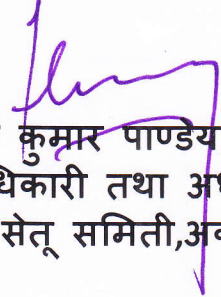 कुमार पाण्डेय
धिकारी तथा अध
सेतू समिती,अक